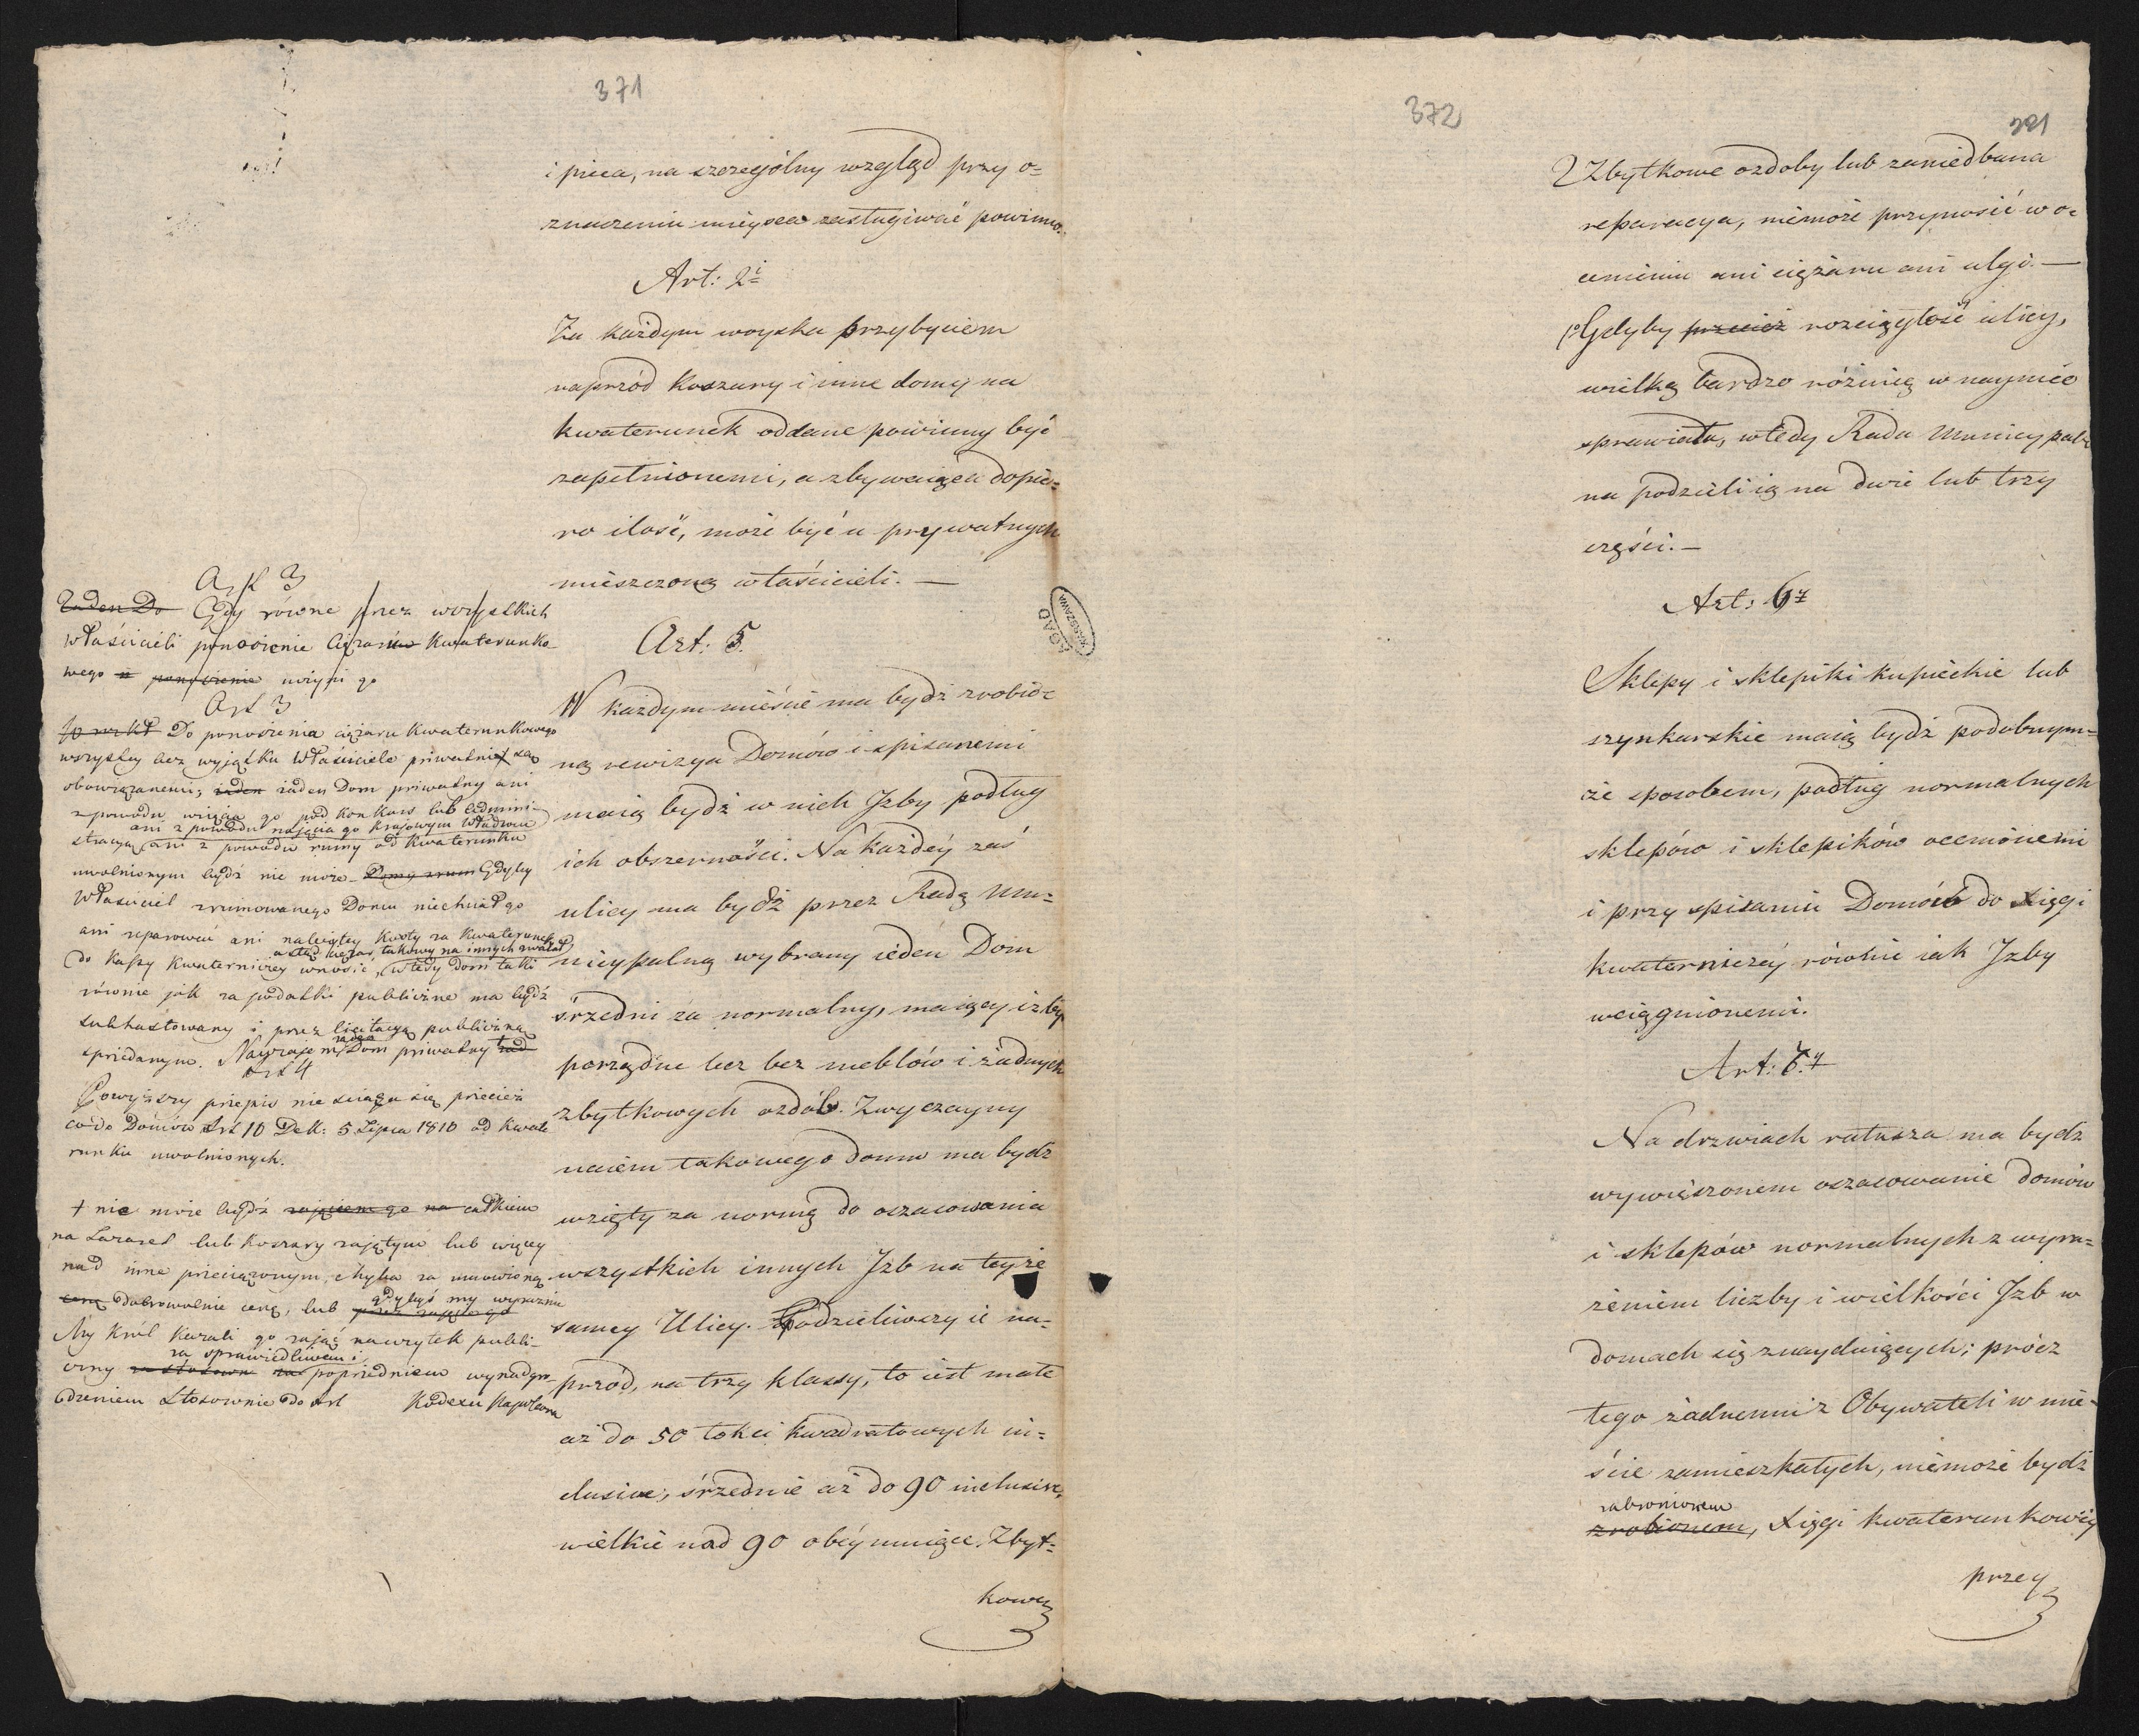 371
i pieca, na szczególny wzgląd przy o=
znaczeniu mieysca zasługiwać powinno.
Art: 2i
Za każdym woyska przybyciem
naprzód Koszary i inne domy na
kwaterunek oddane powinny być
zapełnionemi, a zbywaiąca dopie=
ro ilość, może być u prywatnych
mieszczoną właścicieli. —
Art: 5.
W każdym mieście ma bydź zrobio=
na rewizya Domów i spisanemi
maią bydź w nich Jzby podług
ich obszerności. Na każdéy zaś
ulicy ma bydź przez Radę Mu=
nicypalną wybrany ieden Dom
śrzedni za normalny, maiący izby
porządne lecz bez meblów i żadnych
zbytkowych ozdób. Zwyczayny
naiem takowego domu ma bydź
wzięty za normę do oszacowania
wszystkich innych Jzb na teyże
samey Ulicy. Podzieliwszy ie na=
przód, na trzy klassy, to iest małe
aż do 50 łokci kwadratowych in=
clusive, śrzednie aż do 90 inclusive,
wielkie nad 90 obéymuiące. Zbyt=
kowe
Art 3
Żaden Do Gdy równe przez wszystkich
Właścicieli ponoszenie Ciężarów Kwaterunko
wego ponoszenie uczyni go
Art 3
Do ponoszenia ciężaru Kwaterunkowego
wszyscy bez wyjątku Właściciele priwatni są
obowiązanemi, żaden żaden Dom priwatny ani
z powodu wzięcia go pod Konkurs lub admini-
ani z powodu najęcia go Krajowym Władzom
stracyą, ani z powodu ruiny od Kwaterunku
uwolnionym bydź nie może. Gdyby
Właściciel zruinowanego Domu niechciał go
ani reparować ani należytey Kwoty za Kwaterunek
a stąd ciężar takowy na innych zwalał
do Kassy Kwaterniczey wnosić, wtedy Dom taki
równie jak za podatki publiczne ma bydź
subhastowany i przez licytacyą publiczną
sprzedanym. Dom priwatny
Art 4
Powyższy przepis nie sciąga się przecież
co do Domów Art 10 Dek: 5 Lipca 1810 od Kwate
runku uwolnionych.
+ nie może bydź zajęciem go na całkiem
na Lazaret lub Koszary zajętym lub więcey
nad inne przeciążonym, chyba za umówioną
cenę dobrowolnie cenę, lub gdybyś my wyraznie
My Król Kazali go zająć na użytek publi-
za sprawiedliwem i
czny za poprzedniem wynadgro
dzeniem stosownie do Art Kodexu Napoleona
372
221
Zbytkowe ozdoby lub zaniedbana
reparacya, niemoże przynosić w o=
cenieniu ani ciężaru ani ulgi. —
Gdyby przecież rozciągłość ulicy,
wielką bardzo różnicę w naymie
sprawiała, wtedy Rada Municypal=
na podzieli ią na dwie lub trzy
części. —
Art: 6y
Sklepy i sklepiki kupieckie lub
szynkarskie maią bydź podobnym=
że sposobem, podług normalnych
sklepów i sklepików ocenionemi
i przy spisaniu Domów do Xięgi
kwaterniczéy równie iak Jzby
wciągnionemi.
Art: 7y
Na drzwiach ratusza ma bydź
wywieszonem oszacowanie domów
i sklepów normalnych z wyra=
żeniem liczby i wielkości Jzb w
domach się znayduiących; prócz
tego żadnemu z Obywateli w mie=
ście zamieszkałych, niemoże bydź
zabronionem
zrobionem, Xięgi kwaterunkowéy
przey
AGAD
WARSZAWA